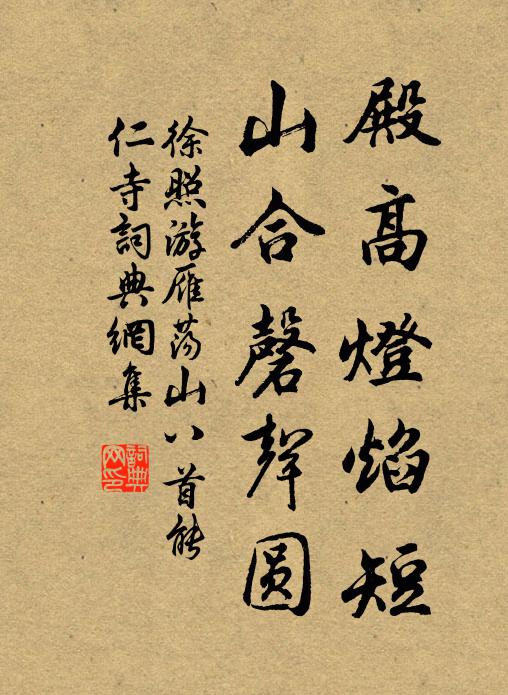 殿高燈焰短
山合磬聲圓
徐照游雁蕩山八首能
仁寺詞典網集
詞典網印